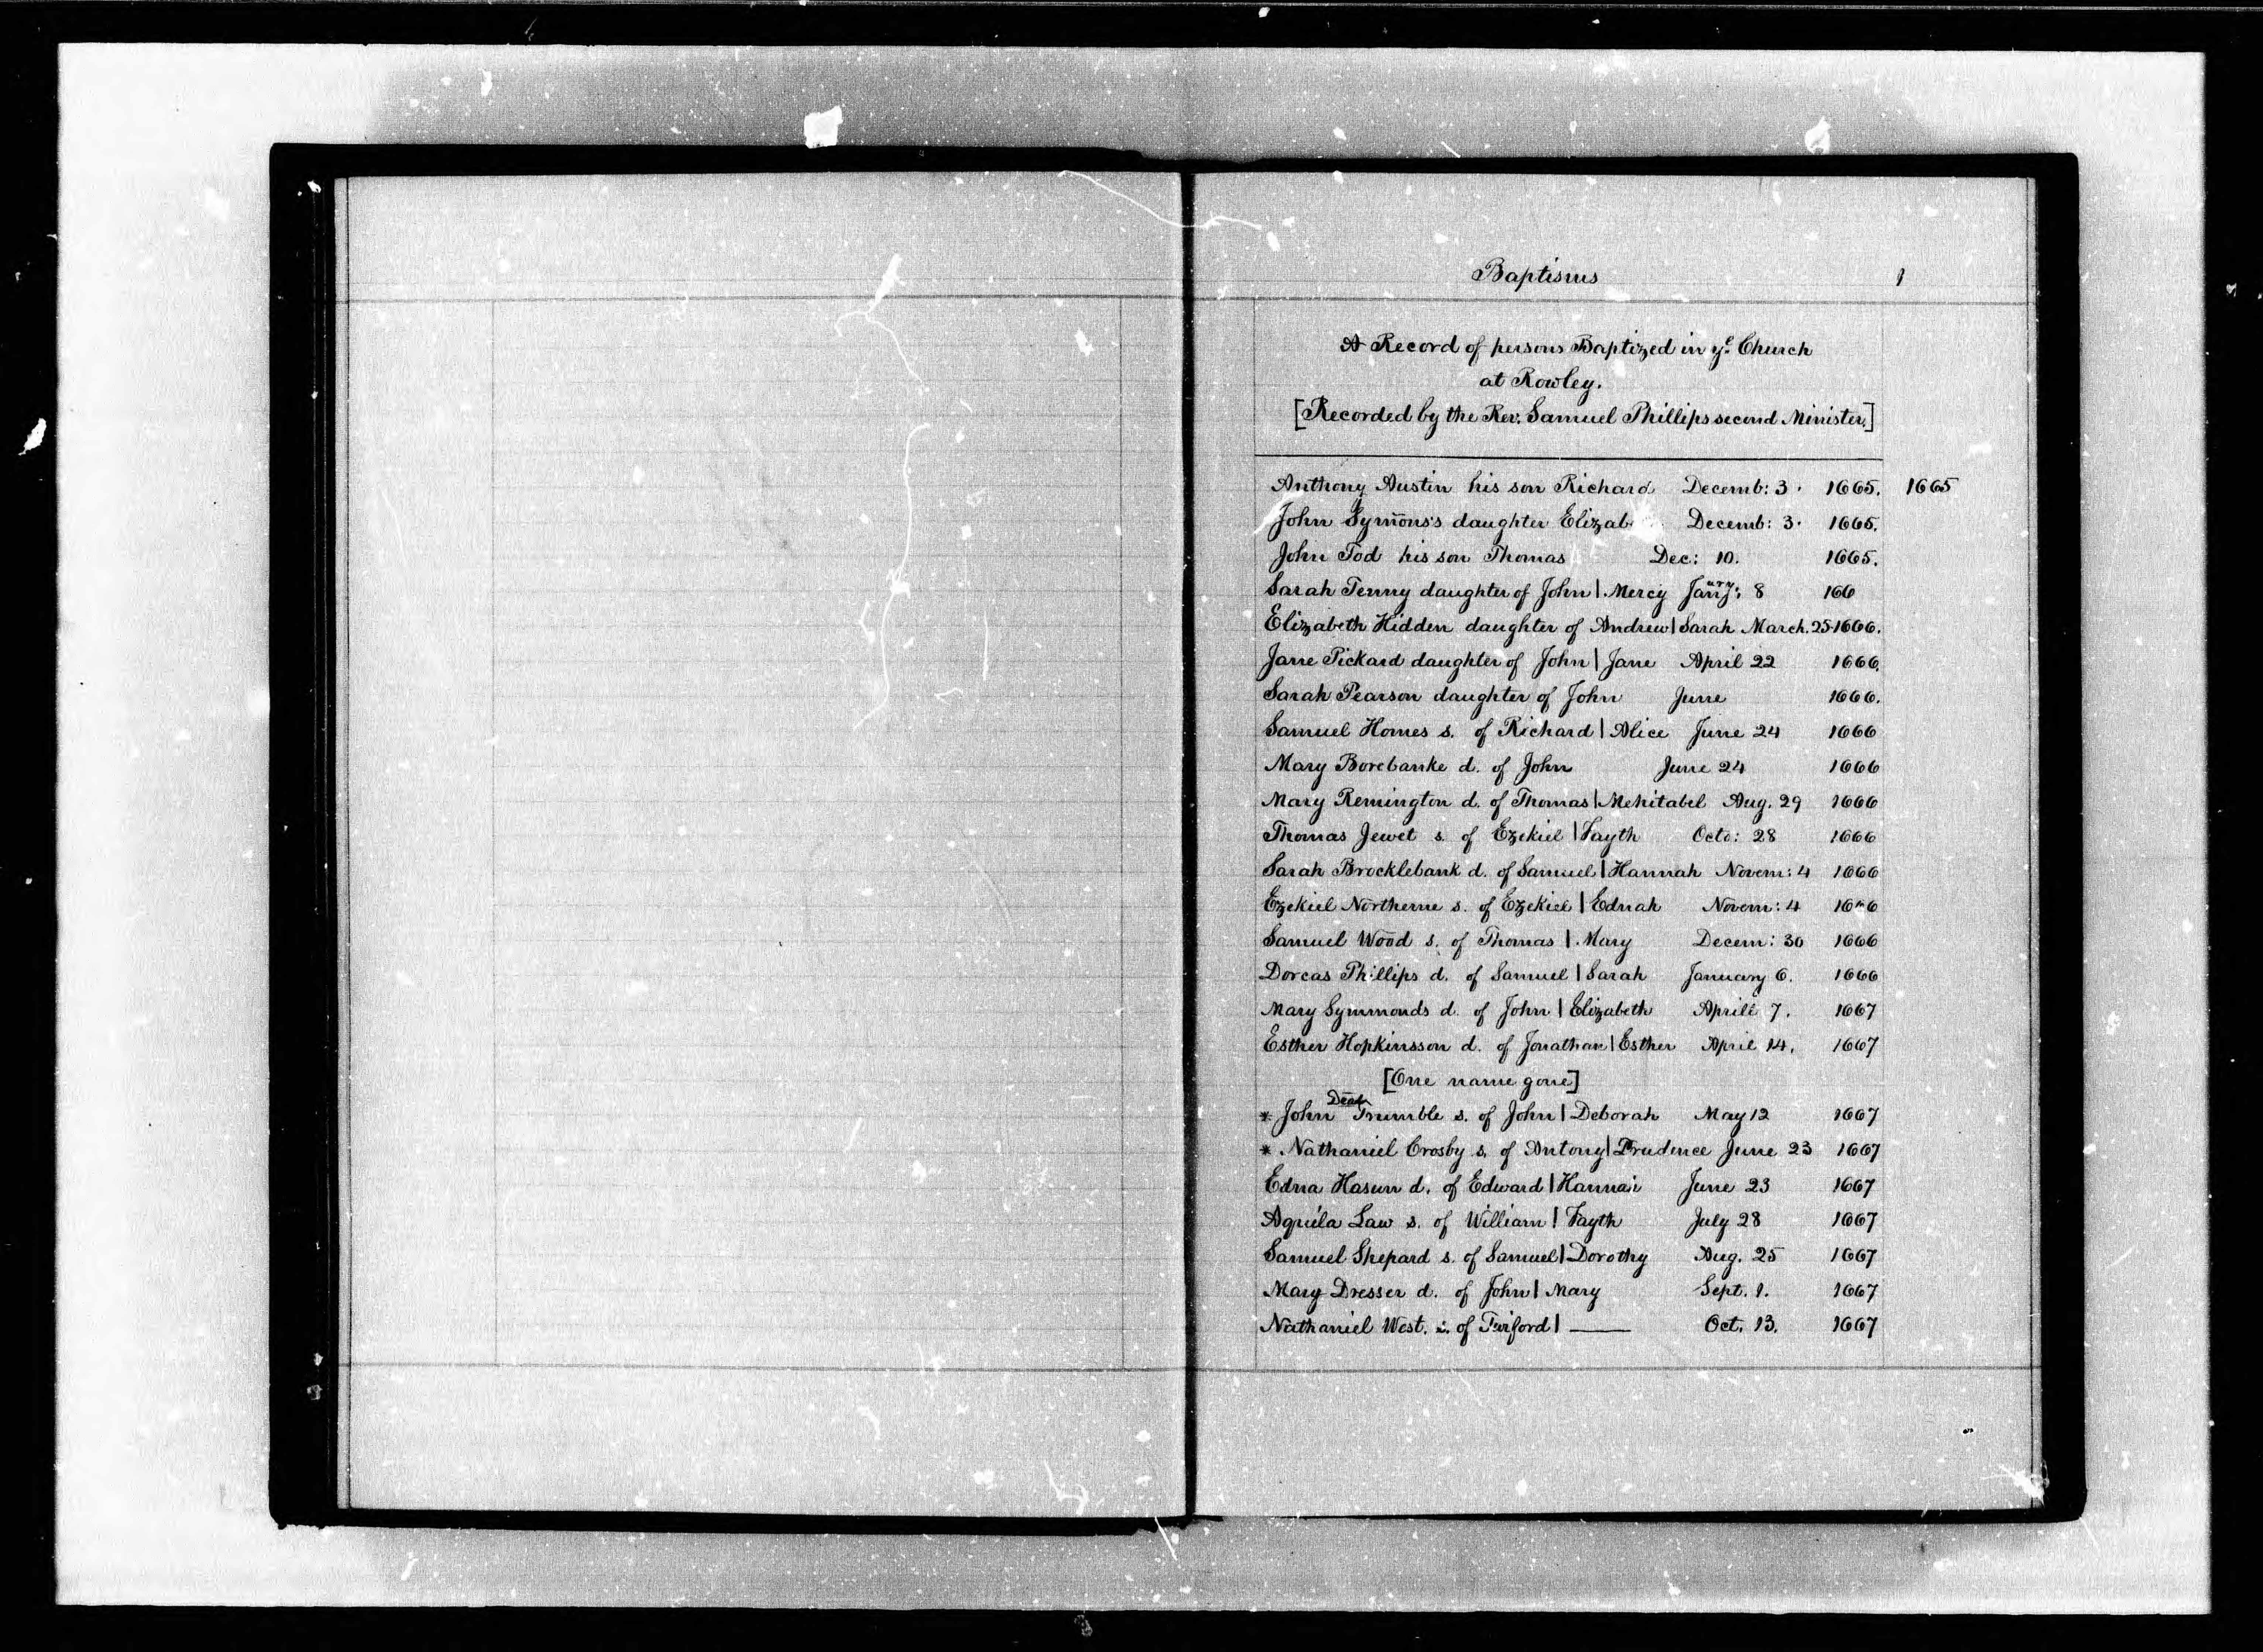 Baptisms 1
A Record of persons Baptized in yᵉ Church
at Rowley.
[Recorded by the Rev. Samuel Phillips second Minister.]
Anthony Austin his son Richard Decemb: 3. 1665. 1665
John Symōns's daughter Elizab Decemb: 3. 1665.
John Tod his son Thomas Dec: 10. 1665.
Sarah Tenny daughter of John | Mercy 8 166
Elizabeth Hidden daughter of Andrew | Sarah March. 25. 1666.
Jane Pickard daughter of John | Jane April 22 1666.
Sarah Pearson daughter of John June 1666.
Samuel Homes s. of Richard | Alice June 24 1666
Mary Borebanke d. of John June 24 1666
Mary Remington d. of Thomas | Mehitabel Aug. 29 1666
Thomas Jewet s. of Ezekiel | Fayth Octo: 28 1666
Sarah Brocklebank d. of Samuel | Hannah Novem: 4 1666
Ezekiel Northerne s. of Ezekiel | Ednah Novem: 4
Samuel Wood s. of Thomas | Mary Decem: 30 1666
Dorcas Phillips d. of Samuel | Sarah January 6. 1666
Mary Symmonds d. of John | Elizabeth Aprill 7. 1667
Esther Hopkinsson d. of Jonathan | Esther April 14. 1667
[One name gone]
* John Trumble s. of John | Deborah May 12 1667
* Nathaniel Crosby s. of Antony | Prudence June 23 1667
Edna Hasun d. of Edward | June 23 1667
Aquila Law s. of William | Fayth July 28 1667
Samuel Shepard s. of Samuel | Dorothy Aug. 25 1667
Mary Dresser d. of John | Mary Sept. 1. 1667
Nathaniel West. s. of Twiford | —— Oct. 13. 1667